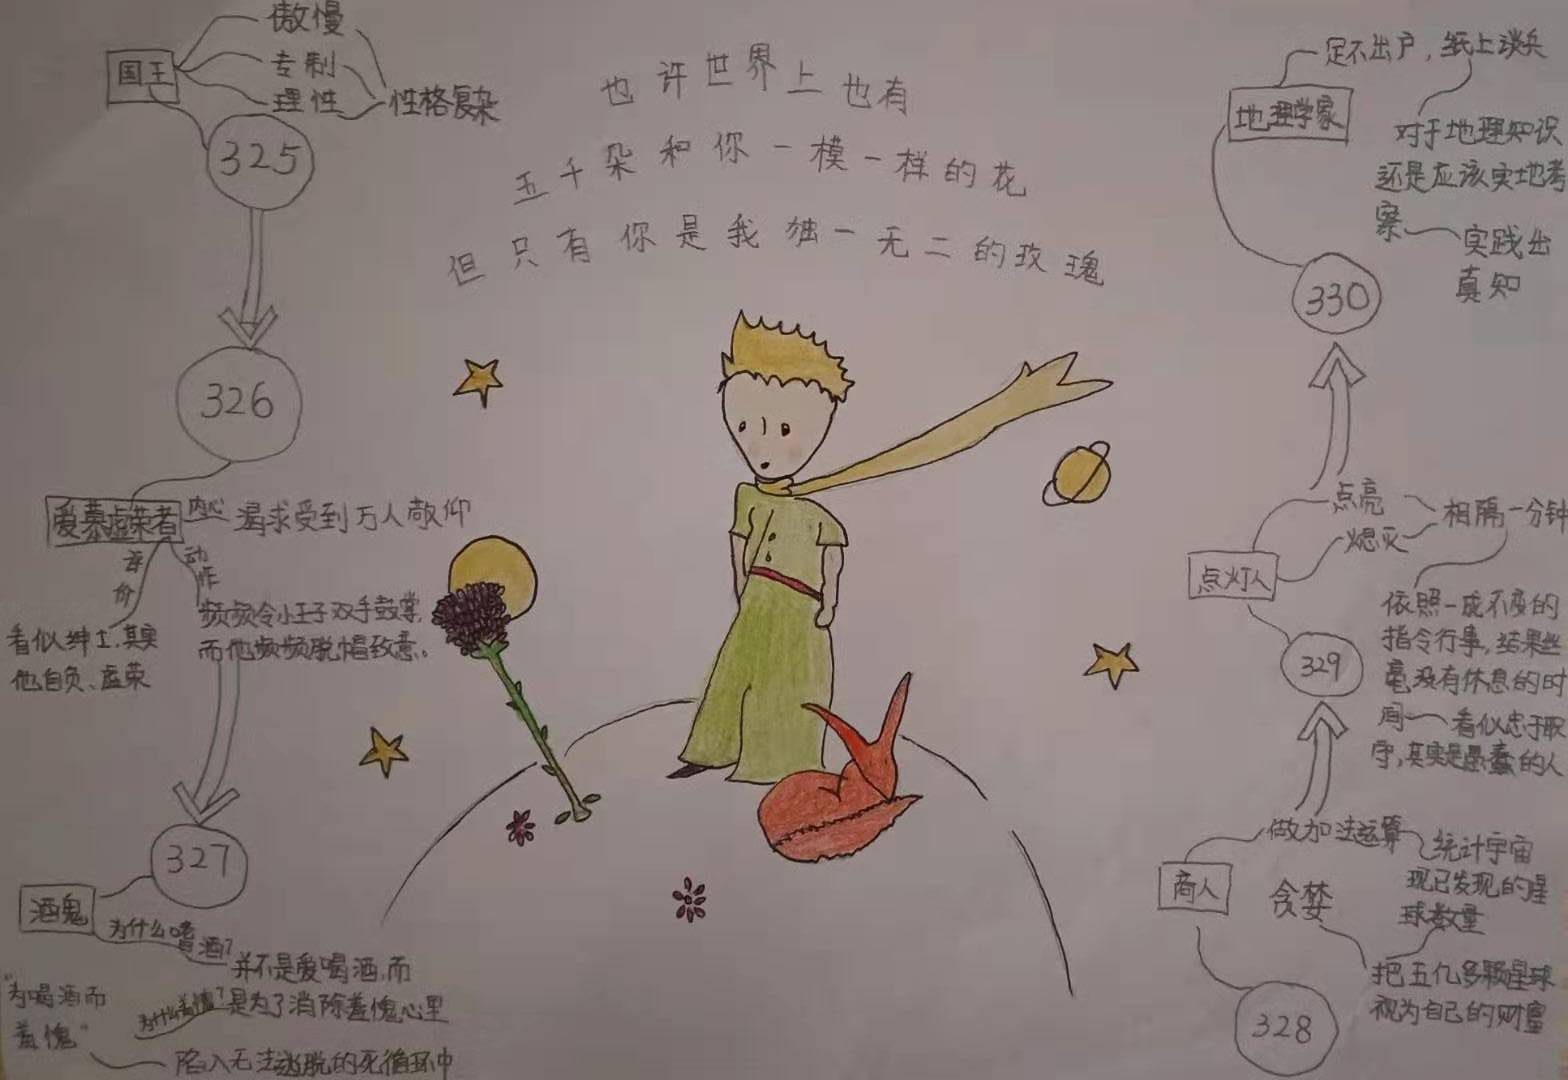 也许世界上也有
五千朵和你一模一样的花
但只有你是我独一无二的玫瑰
国王
傲慢
专制
理性
性格复杂
325
326
爱慕虚荣者
内心
渴求受到万人敬仰
评价
看似绅士,其实
他自负、虚荣
动作
频频令小王子双手鼓掌,
而他频频脱帽致意。
327
酒鬼
为什么嗜酒?
并不是爱喝酒,而
是为了消除羞愧心里
为什么羞愧?
"为喝酒而
羞愧"
陷入无法逃脱的死循环中
328
商人
做加法运算
统计宇宙
现已发现的星
球数量
贪婪
把五亿多颗星球
视为自己的财富
329
点灯人
点亮
熄灭
相隔一分钟
依照一成不变的
指令行事,结果丝
毫没有休息的时
间
看似忠于职
守,其实是愚蠢的人
330
地理学家
足不出户,纸上谈兵
对于地理知识
还是应该实地考
察
实践出
真知